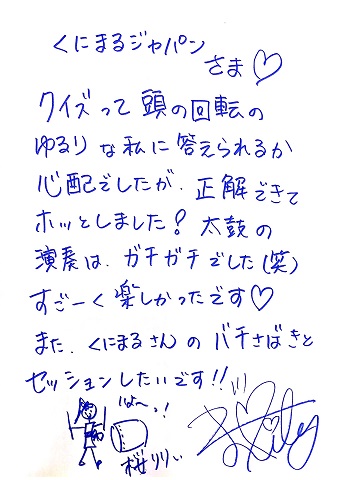 くにまるジャパン
さま♡
クイズって頭の回転の
ゆるりな私に答えられるか
心配でしたが、正解できて
ホッとしました! 太鼓の
演奏は、ガチガチでした(笑)
すごーく楽しかったです♡
また、くにまるさんのバチさばきと
セッションしたいです!!
はっ〜!
桜リリィ